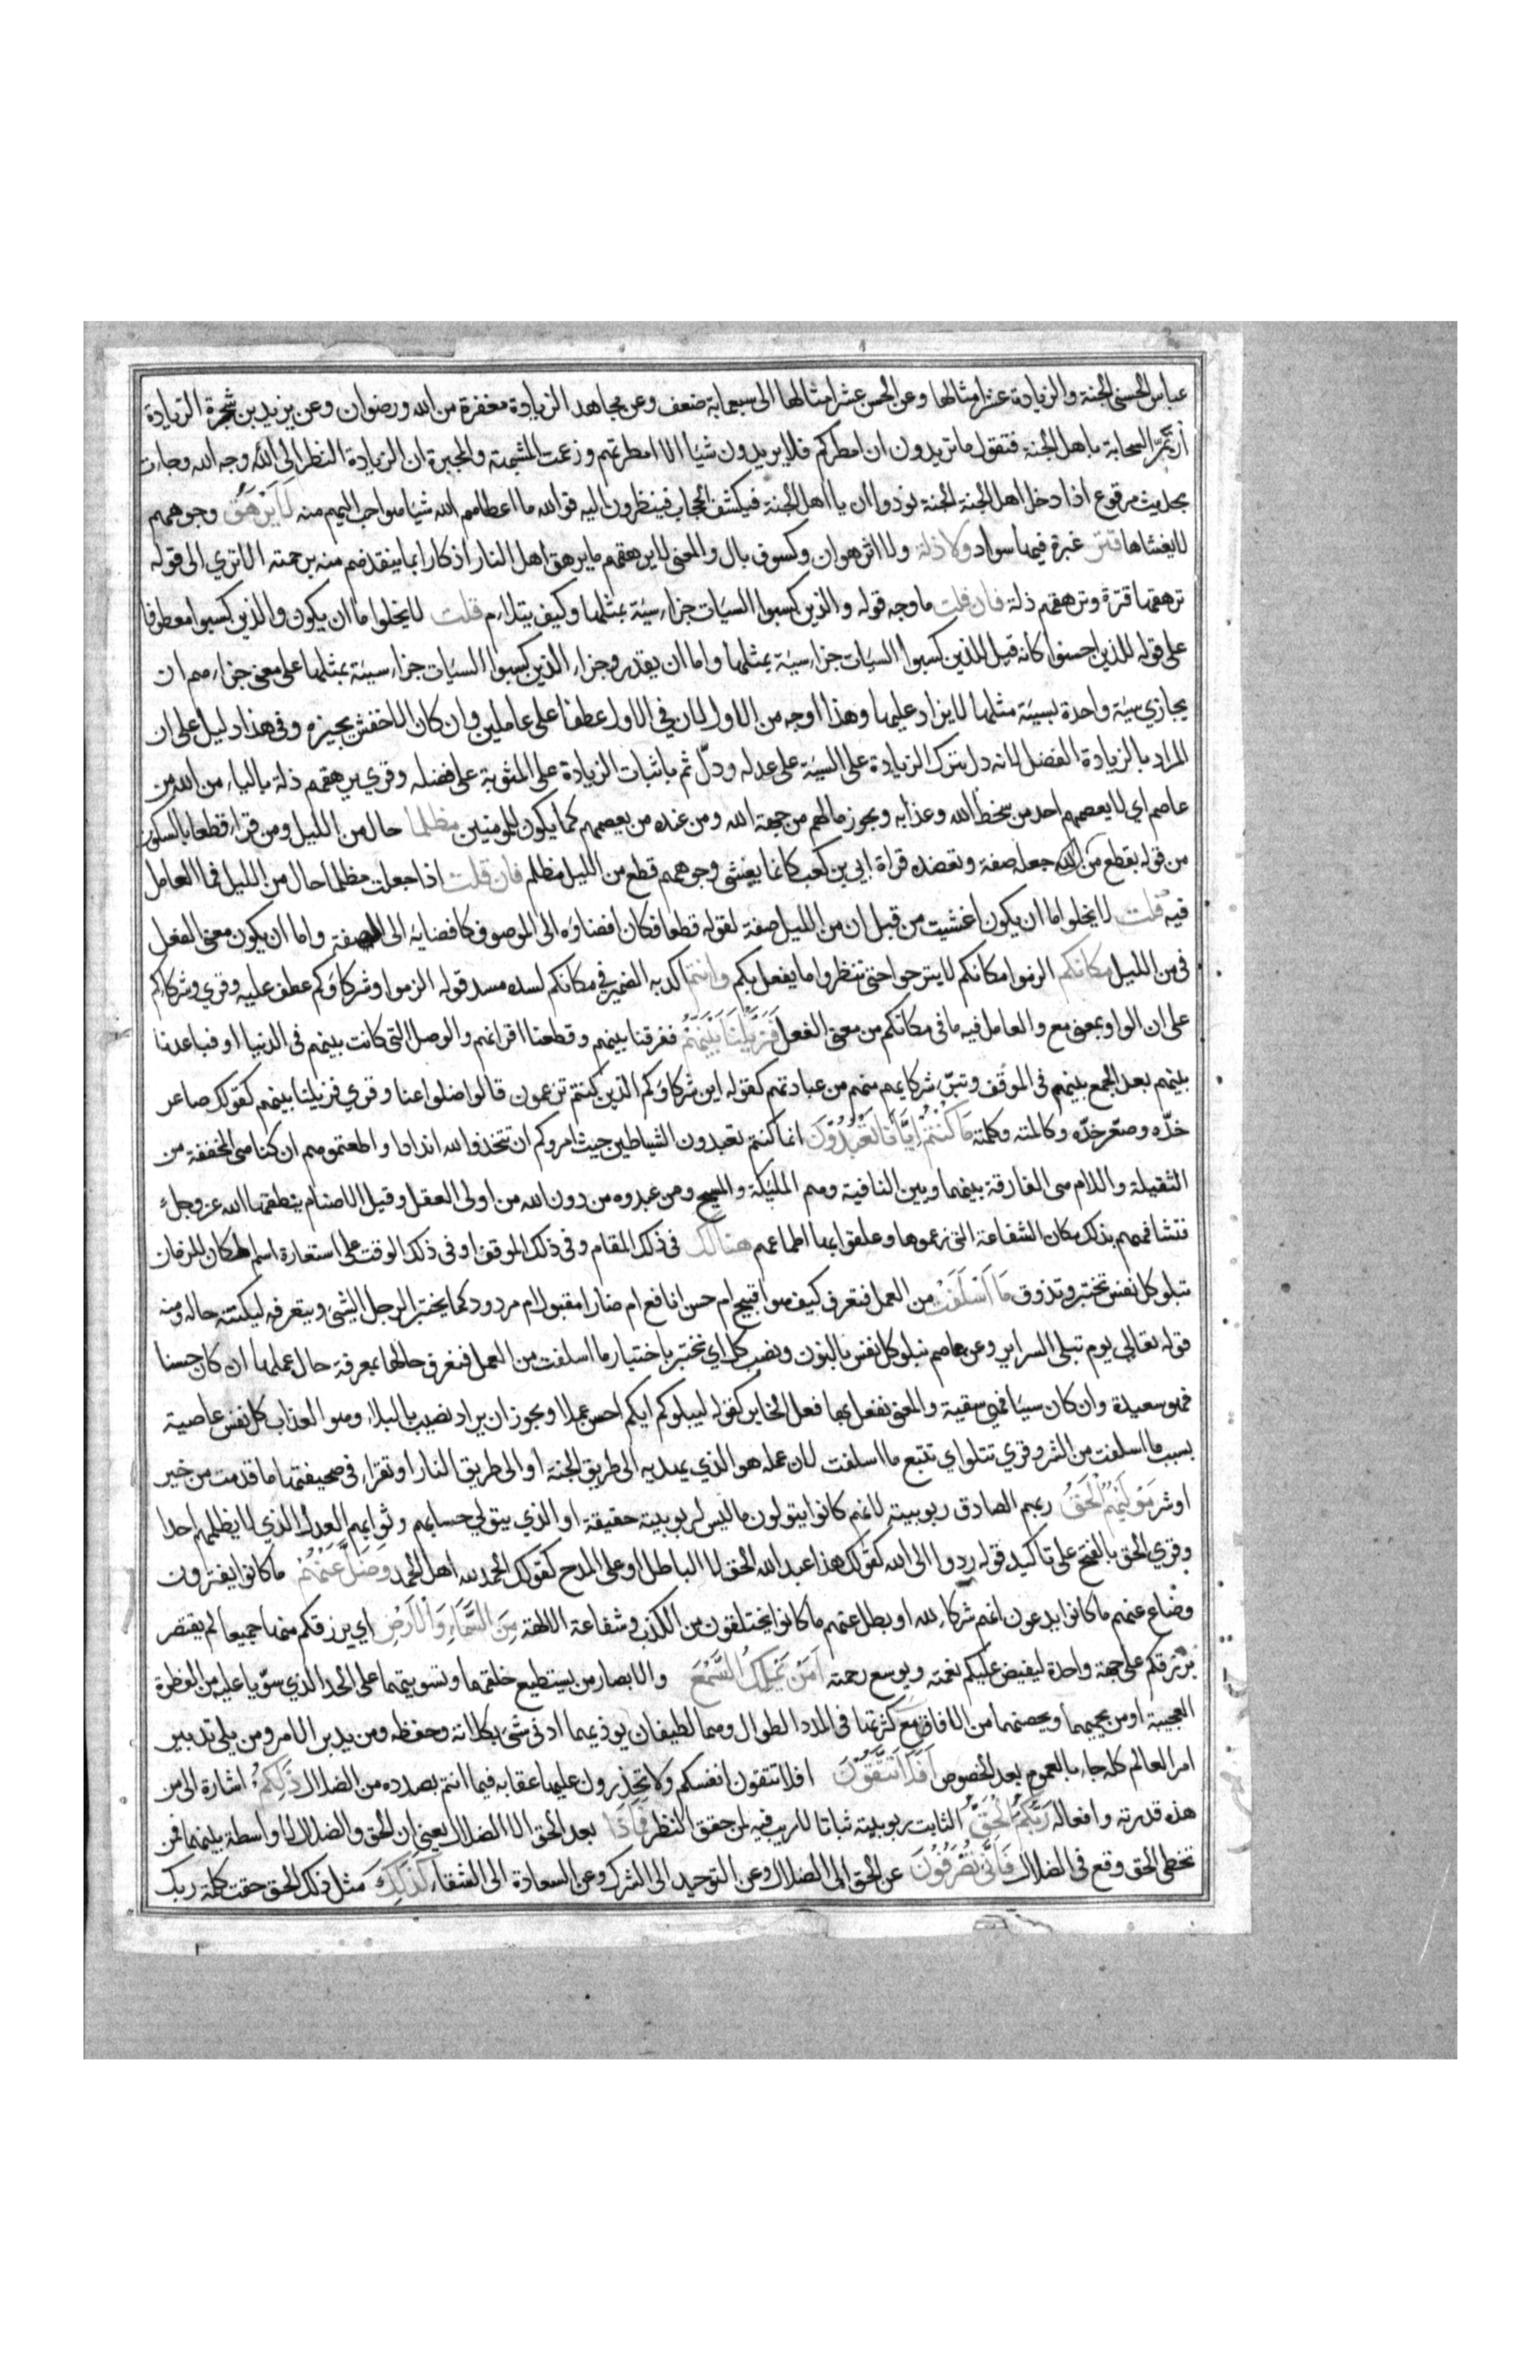 عباس الحسنى الجنة والزيادة عشر امثالها وعن الحسن عشر امثالها الى سبعماية ضعف وعن مجاهد الزيادة مغفرة من الله ورضوان وعن يزيد بن شجرة الزيادة
ان تمر السحابة باهل الجنة فتقول ما تريدون ان امطركم فلا يريدون شيا الا امطرتهم وزعمت المشبهة والمجبرة ان الزيادة النظر الى الله وجه الله وجات
بحديث مرقوع اذا دخل اهل الجنة الجنة نودوا ان يا اهل الجنة فيكشف الحجاب فينظرون اليه فوالله ما اعطاهم الله شيا هو احب اليهم منه لَا يَرْهَقُ وجوههم
لا يغشاها قتر غبرة فيها سواد ولا ذلة ولا اثر هوان وكسوف بال والمعنى لا يرهقهم ما يرهق اهل النار اذكارا بما ينقذهم منه برحمته الا ترى الى قوله
ترهقها قترة وترهقهم ذلة فان قلت ما وجه قوله والذين كسبوا السيات جزاء سيئة بمثلها وكيف يتلاءم قلت لا يخلوا ما ان يكون والذين كسبوا معطوفا
على قوله للذين احسنوا كانه قيل للذين كسبوا السيات جزاء سيئة بمثلها واما ان يقدر وجزاء الذين كسبوا السيات جزاء سيئة بمثلها على معنى جزاءهم ان
يجازي سيئة واحدة بسيئة مثلها لا يزاد عليها وهذا اوجه من الاول لان في الاول عطفا على عاملين وان كان الاخفش يجيزه وفى هذا دليل على ان
المراد بالزيادة الفضل لانه دل بترك الزيادة على السيئة على عدله ودلّ ثم باثبات الزيادة على المثوبة على فضله وقري يرهقهم ذلة بالياء من الله من
عاصم اي لا يعصمهم احد من سخط الله وعذابه ويجوز مالهم من جهة الله ومن عنده من يعصمهم كما يكون للمومنين مظلما حال من الليل ومن قراء قطعا بالسكون
من قوله بقطع من الليل جعله صفة وتعضده قراة ابي بن كعب كانما يغشى وجوههم قطع من الليل مظلم فان قلت اذا جعلت مظلما حال من الليل فما العامل
فيه قلت لا يخلوا ما ان يكون اغشيت من قبل ان من الليل صفة لقوله قطعا فكان افضاوه الى الموصوف كافضايه الى الصفة واما ان يكون معنى الفعل
فى من الليل مكانكم الزموا مكانكم لا يتبرحوا حتى تنظروا ما يفعل بكم وانتم اكد به الضمير في مكانكم لسده مسد قوله الزموا وشركاوكم عطف عليه وقري وشركاءكم
على ان الواو بمعنى مع والعامل فيه ما فى مكانكم من معنى الفعل فَزَيَّلْنَا بَيْنَهُمْ ففرقنا بينهم وقطعنا اقرانهم والوصل التى كانت بينهم فى الدنيا او فباعدنا
بينهم بعد الجمع بينهم فى الموقف وتبرّي شركايهم منهم من عبادتهم كقوله اين شركاوكم الذين كنتم تزعمون قالوا ضلوا عنا وقري فزايلنا بينهم كقولك صاعر
خدّه وصعّر خدّه وكالمته وكلمته مَا كُنْتُمْ اِيَّانَا تَعْبُدُوْنَ انما كنتم تعبدون الشياطين حيث امروكم ان تتخذوا لله اندادا واطعتموهم ان كنا هى المخففة من
الثقيلة واللام هى الفارقة بينهما وبين النافية وهم المليكة والمسيح ومن عبدوه من دون الله من اولى العقل وقيل الاصنام ينطقها الله عز وجل
فتشافههم بذلك مكان الشفاعة التى زعموها وعلقوا بها اطماعهم هنالك فى ذلك المقام وفى ذلك الموقف او فى ذلك الوقت على استعارة اسم المكان للزمان
تبلو كل نفس تختبر وتذوق مَا اَسْلَفَتْ من العمل فتعرف كيف هو اقبيح ام حسن انافع ام ضار امقبول ام مردود كما يختبر الرجل الشيء ويتعرفه ليكتنه حاله ومنه
قوله تعالى يوم تبلى السراير وعن عاصم نبلو كل نفس بالنون ونصب كل اي نختبر باختيار ما اسلفت من العمل فنعرف حالها بمعرفة حال عملها ان كان حسنا
فهو سعيدة وان كان سيئا فهى شقية والمعنى نفعل بها فعل الخابر كقوله ليبلوكم ايكم احسن عملا ويجوز ان يراد نصيب بالبلاء وهو العذاب كل نفس عاصية
بسبب ما اسلفت من الشر وقري تتلوا اي تتبع ما اسلفت لان عمله هو الذي يهديه الى طريق الجنة او الى طريق النار او تقراء فى صحيفتها ما قدمت من خير
او شر مَوْلٰيهُمُ الْحَقِّ ربهم الصادق ربوبيته لانهم كانوا يتولون ما ليس لربوبيته حقيقة او الذي يتولى حسابهم وثوابهم العدل الذي لا يظلمهم احدا
وقري الحق بالفتح على تاكيد قوله ردوا الى الله كقولك هذا عبد الله الحق لا الباطل او على المدح كقولك الحمد لله اهل الحمد وَضَلَّ عَنْهُمْ ما كانوا يفترون
وضاع عنهم ما كانوا يدعون انهم شركاء لله او بطل عنهم ما كانوا يختلقون من الكذب وشفاعة الالهة مِنَ السَّمَاءِ وَالْاَرْضِ اي يرزقكم منهما جميعا لم يقتصر
برزقكم على جهة واحدة ليفيض عليكم نعمته ويوسع رحمته اَمَّنْ يَمْلِكُ السَّمْعَ والابصار من يستطيع خلقهما وتسويتهما على الحد الذي سوّيا عليه من الفطرة
العجيبة او من يحييهما ويحصنهما من الافاق مع كثرتها فى المدد الطوال وهما لطيفان يوذيهما ادنى شيء بكلائه وحفظه ومن يدبر الامر ومن يلي تدبير
امر العالم كله جاء بالعموم بعد الخصوص اَفَلَا تَتَّقُوْنَ افلا تتقون انفسكم ولا تحذرون عليها عقابه فيما انتم بصدده من الضلال ذٰلِكُمْ اشارة الى من
هذه قدرته وافعاله رَبُّكُمُ الْحَقُّ الثابت ربوبيته ثباتا لا ريب فيه لمن حقق النظر فَمَاذَا بعد الحق الا الضلال يعنى ان الحق والضلال لا واسطة بينهما فمن
تخطى الحق وقع فى الضلال فَاَنّٰى تُصْرَفُوْنَ عن الحق الى الضلال وعن التوحيد الى الشرك وعن السعادة الى الشقاء كَذٰلِكَ مثل ذلك الحق حقت كلمة ربك